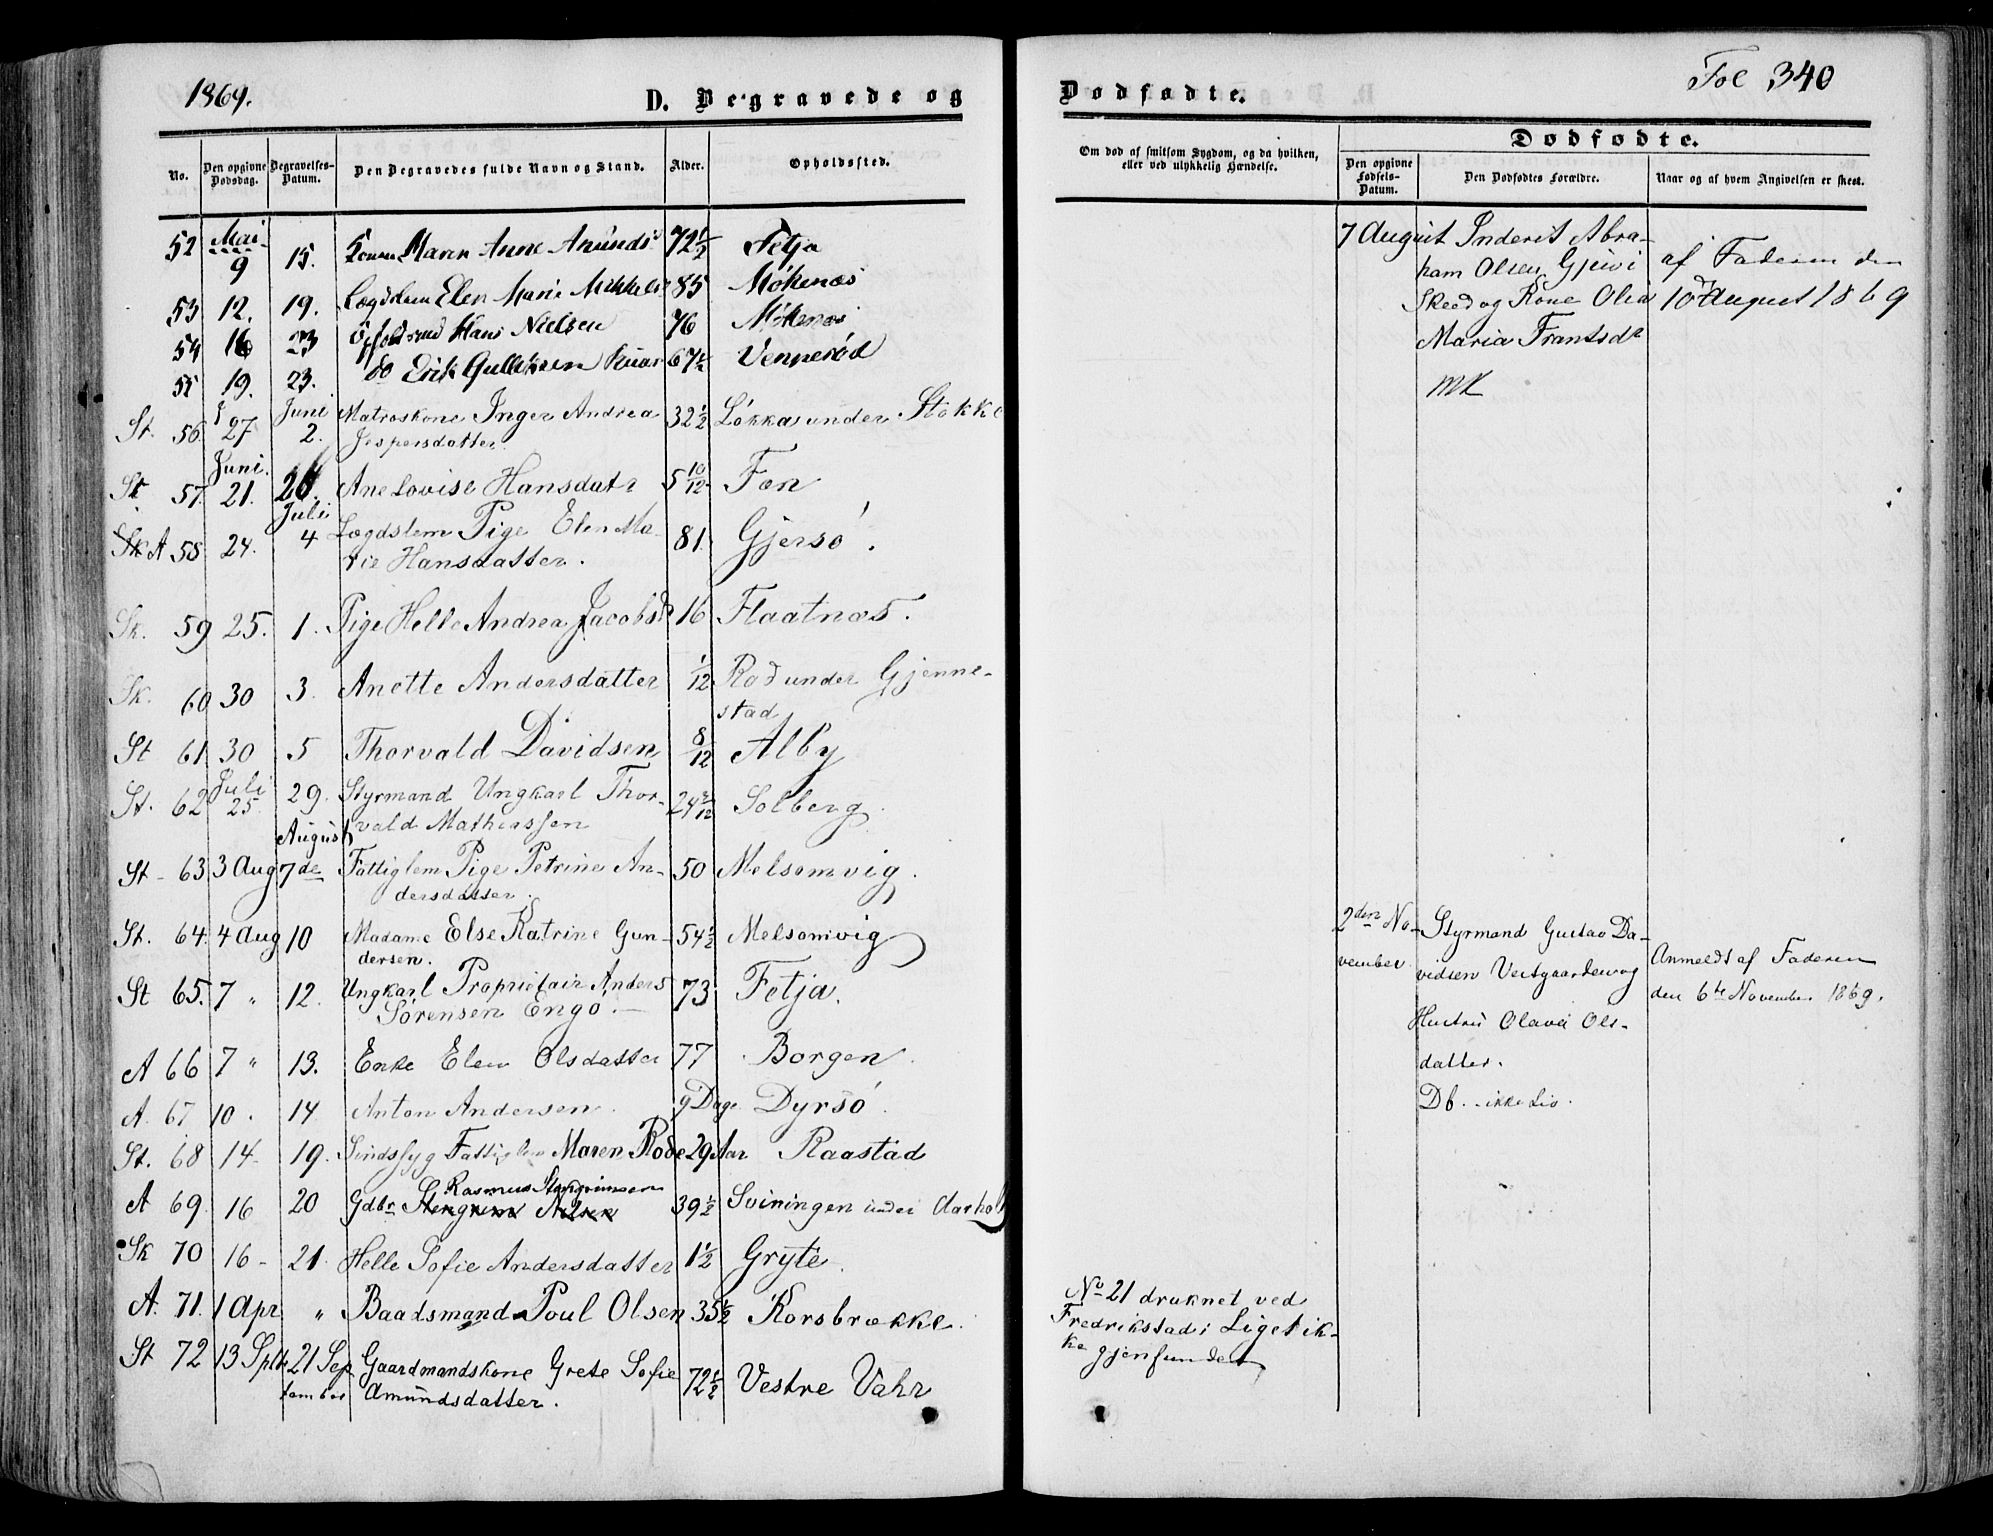 1869.
D. Begravede og
Dødfødte.
Fol 340
No.
Den opgivne Dødsdag.
Begravelses-Datum.
Den Begravedes fulde Navn og Stand.
Alder.
Opholdssted.
Om død af smitsom Sygdom, og da hvilken,
eller ved ulykkelig Hændelse.
Dødfødte.
Den opgivne Fødsels-Datum.
Den Dødfødtes Forældre.
Naar og af hvem Angivelsen er skeet.
52 Mai 9 15. Maren Anne Amunds 72 1/2 Fetja
53 12. 19. Lægdslem Elen Marie Mikkels 85 Møkenæs
54 16 23 Hans Nielsen 76 Møkenæs
55 19. 23. do Erik Gulliksen 67 1/2 Vennerød
St. 56. 27 Juni 2. Matroskone Inger Andrea 32 1/2 Løkka under Stokke
Jespersdatter
St 57. Juni. 21. 26. Ane Lovise Hansdatr 5 10/12 Fen
A 58 24. Juli 4 Lægdslem Pige Elen Ma- 81. Gjersø.
rie Hansdatter.
Sk. 59 25. 1. Pige Helle Andrea Jacobsd 16 Flaatnæs.
Sk. 60 30 3. Anette Andersdatter 1/12 Rød under Gjenne-
stad
St 61 30 5 Thorvald Davidsen 8/12 Alby
St. 62 Juli 25 29. Styrmand Ungkarl Thor- 24 Solberg.
vald Mathiassen
August
St - 63 3 Aug 7de Fattiglem Pige Petrine An- 50 Melsomvig.
dersdatter.
St. 64. 4 Aug 10 Madame Else Katrine Gun- 54 1/2 Melsomvig
dersen.
St 65. 7 " 12. Ungkarl Proprietair Anders 73 Fetja.
Sörensen Engö.
A 66 7 " 13. Enke Elen Olsdatter 77 Borgen
A. 67 10. 14 Anton Andersen. 9 Dage Dyrsö.
St. 68 14- 19. Sindssyg Fattiglem Maren Rode 29 Aar Raastad
Rasmus Stengrimsen
A 69 16 20 Gdbr. Stengrim Nilsen 39 1/2 Sviningen under Aarholt
Sk 70 16- 21. Helle Sofie Andersdatter 1 1/2 Gryte.
A. 71. 1 Apr " Baadsmand Poul Olsen 35 1/2 Korsbrække.
St 72 13 Septb 21 Sep Gaardmandskone Grete Sofie 72 1/2 Vestre Vahr
tember Amundsdatter.
7 August Inderst Abra-
ham Olsen
Skee og Kone Olea
Maria Frantsdr
af Faderen den
10de August 1869
2den No-
vember
Styrmand Gustav Da-
vidsen Vestgaarden og
Hustru Olava Ols-
datter.
Db. ikke Liv.
Anmeldt af Faderen
den 6te November 1869.
No 21 druknet ved
Fredrikstad; Liget ik-
ke gjenfundet